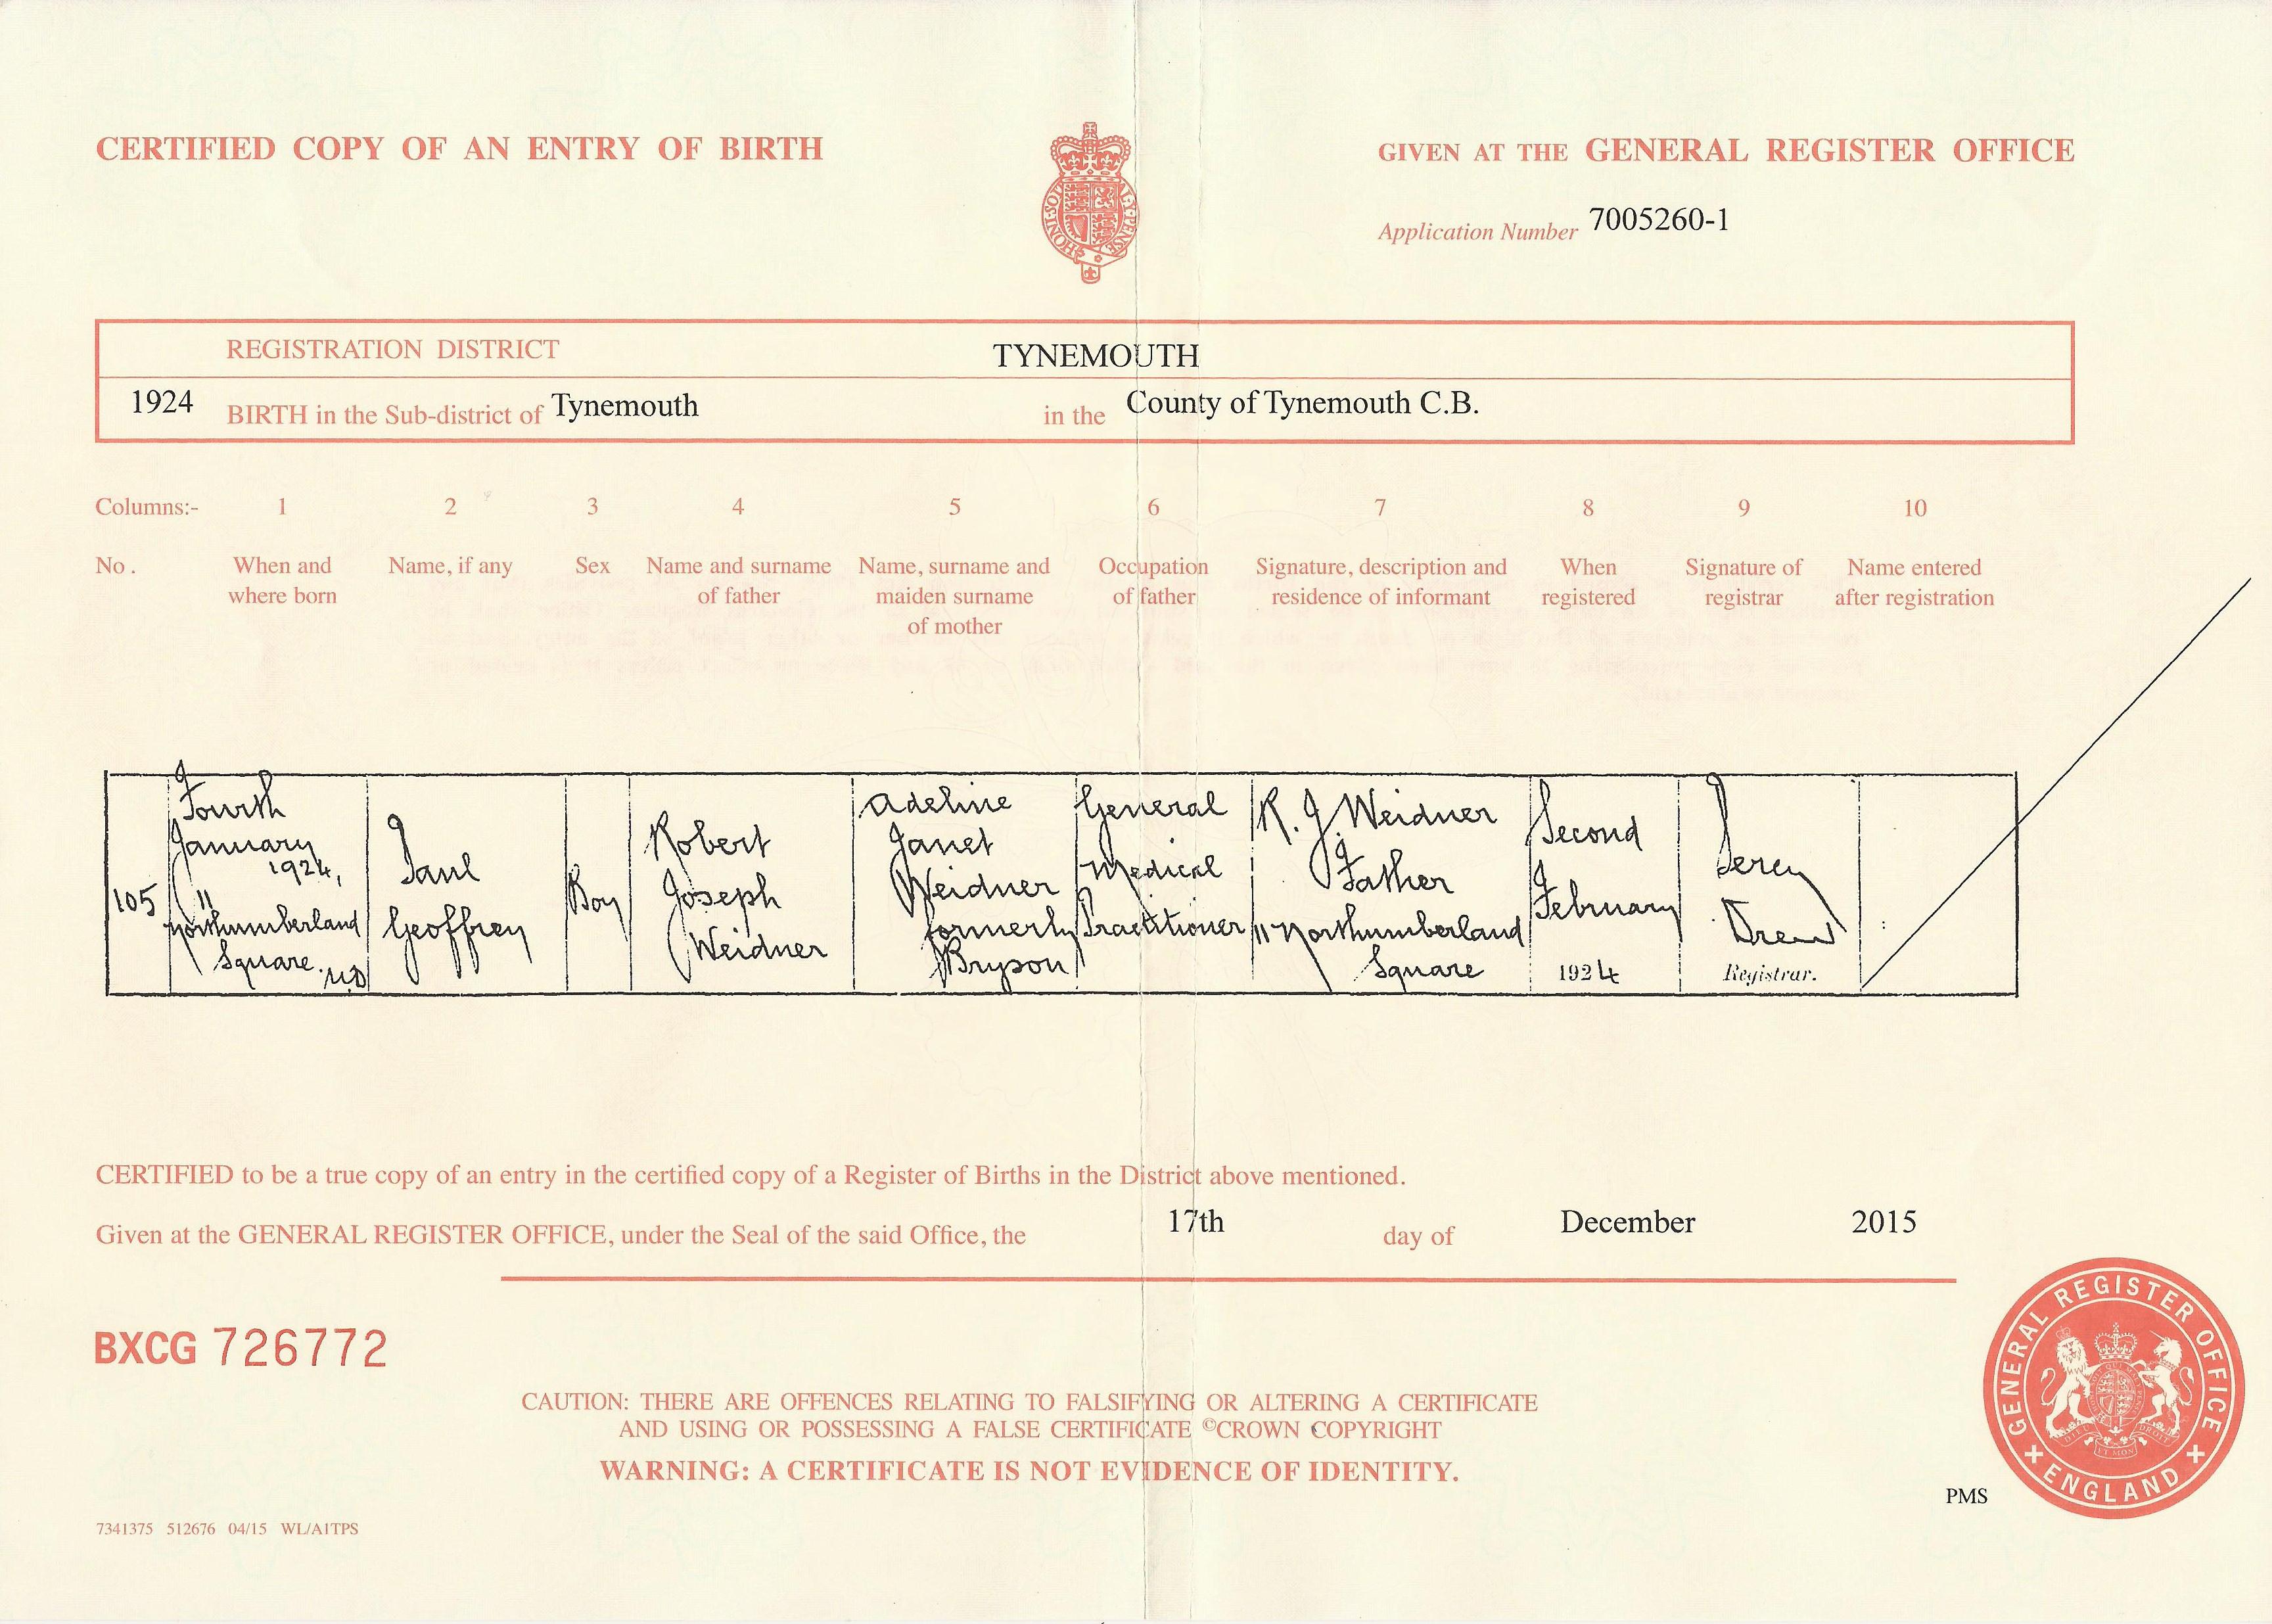 CERTIFIED COPY OF AN ENTRY OF BIRTH
GIVEN AT THE GENERAL REGISTER OFFICE
HONI·SOIT
Y·PENSE
Application Number 7005260-1
REGISTRATION DISTRICT TYNEMOUTH
1924 BIRTH in the Sub-district of Tynemouth in the County of Tynemouth C.B.
Columns:- 1 2 3 4 5 6 7 8 9 10
No. When and where born
Name, if any
Sex
Name and surname of father
Name, surname and maiden surname of mother
Occupation of father
Signature, description and residence of informant
When registered
Signature of registrar
Name entered after registration
105
Fourth
January
1924,
11
Northumberland
Square. U.D
Paul
Geoffrey
Boy
Robert
Joseph
Weidner
Adeline
Janet
Weidner
formerly
Bryson
General
Medical
Practitioner
R. J. Weidner
Father
11 Northumberland
Square
Second
February
1924
Percy
Drew
Registrar.
CERTIFIED to be a true copy of an entry in the certified copy of a Register of Births in the District above mentioned.
Given at the GENERAL REGISTER OFFICE, under the Seal of the said Office, the 17th day of December 2015
BXCG 726772
CAUTION: THERE ARE OFFENCES RELATING TO FALSIFYING OR ALTERING A CERTIFICATE
AND USING OR POSSESSING A FALSE CERTIFICATE ©CROWN COPYRIGHT
WARNING: A CERTIFICATE IS NOT EVIDENCE OF IDENTITY.
GENERAL REGISTER OFFICE
ENGLAND
PMS
7341375 512676 04/15 WL/A1TPS